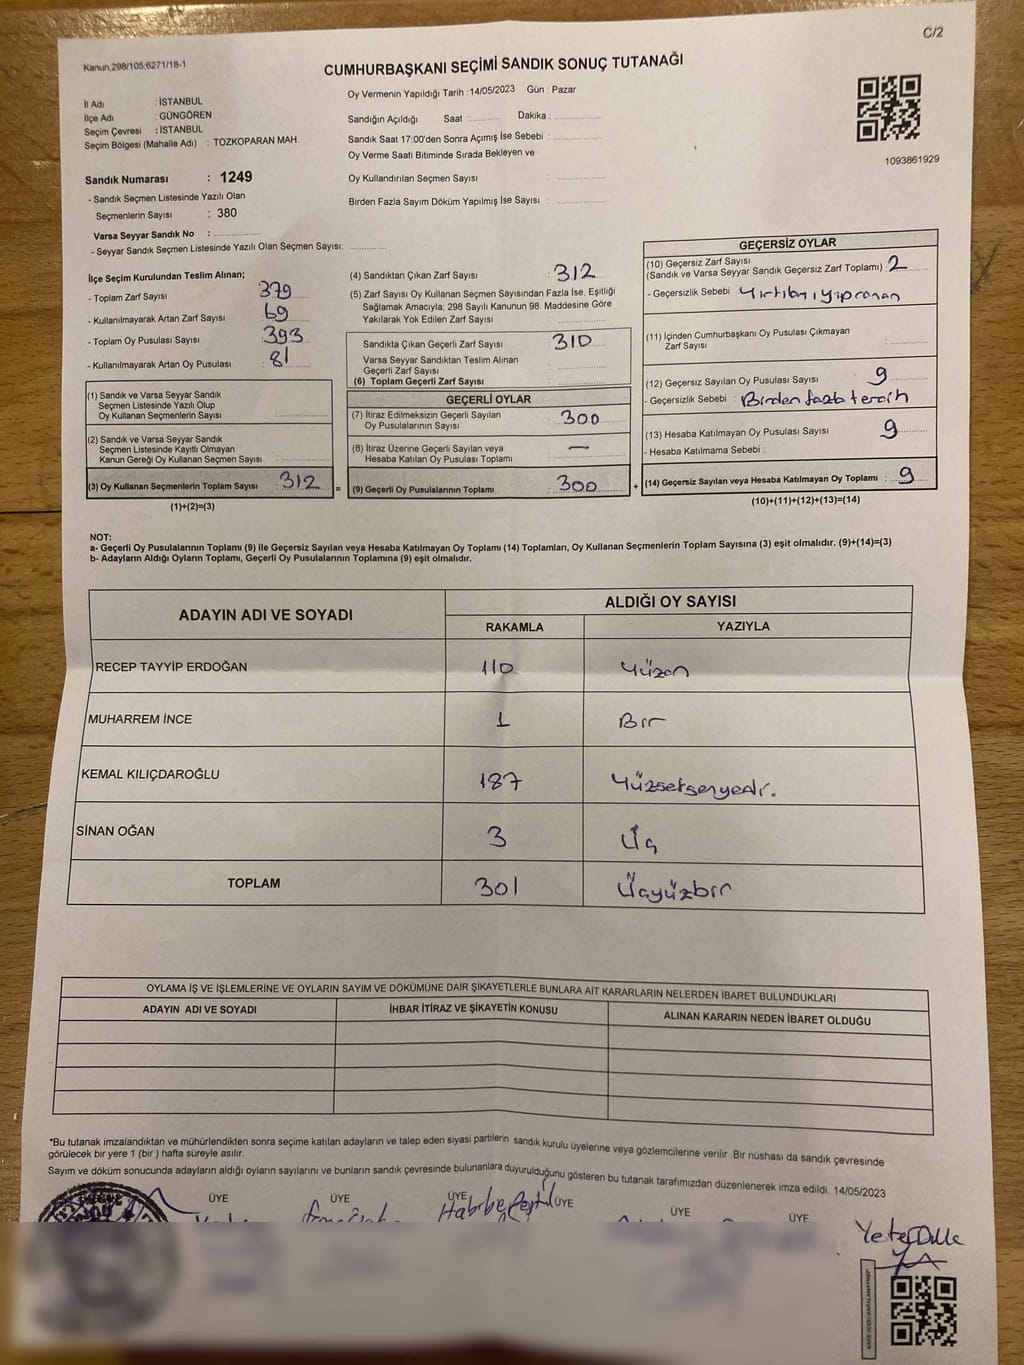 C/2
Kanun.298/105;6271/18-1
CUMHURBAŞKANI SEÇİMİ SANDIK SONUÇ TUTANAĞI
İl Adı : İSTANBUL
İlçe Adı : GÜNGÖREN
Seçim Çevresi : İSTANBUL
Seçim Bölgesi (Mahalle Adı) : TOZKOPARAN MAH.
Sandık Numarası : 1249
- Sandık Seçmen Listesinde Yazılı Olan
Seçmenlerin Sayısı : 380
Varsa Seyyar Sandık No :
- Seyyar Sandık Seçmen Listesinde Yazılı Olan Seçmen Sayısı:
Oy Vermenin Yapıldığı Tarih :14/05/2023 Gün : Pazar
Sandığın Açıldığı Saat : Dakika :
Sandık Saat 17:00'den Sonra Açımış İse Sebebi :
Oy Verme Saati Bitiminde Sırada Bekleyen ve
Oy Kullandırılan Seçmen Sayısı :
Birden Fazla Sayım Döküm Yapılmış İse Sayısı :
1093861929
İlçe Seçim Kurulundan Teslim Alınan;
- Toplam Zarf Sayısı : 379
- Kullanılmayarak Artan Zarf Sayısı : 69
- Toplam Oy Pusulası Sayısı : 393
- Kullanılmayarak Artan Oy Pusulası : 81
(1) Sandık ve Varsa Seyyar Sandık
Seçmen Listesinde Yazılı Olup
Oy Kullanan Seçmenlerin Sayısı :
(2) Sandık ve Varsa Seyyar Sandık
Seçmen Listesinde Kayıtlı Olmayan
Kanun Gereği Oy Kullanan Seçmen Sayısı :
(3) Oy Kullanan Seçmenlerin Toplam Sayısı : 312 =
(1)+(2)=(3)
(4) Sandıktan Çıkan Zarf Sayısı : 312
(5) Zarf Sayısı Oy Kullanan Seçmen Sayısından Fazla İse, Eşitliği
Sağlamak Amacıyla; 298 Sayılı Kanunun 98. Maddesine Göre
Yakılarak Yok Edilen Zarf Sayısı :
Sandıkta Çıkan Geçerli Zarf Sayısı : 310
Varsa Seyyar Sandıktan Teslim Alınan
Geçerli Zarf Sayısı :
(6) Toplam Geçerli Zarf Sayısı :
GEÇERLİ OYLAR
(7) İtiraz Edilmeksizin Geçerli Sayılan
Oy Pusulalarının Sayısı : 300
(8) İtiraz Üzerine Geçerli Sayılan veya
Hesaba Katılan Oy Pusulası Toplamı : —
(9) Geçerli Oy Pusulalarının Toplamı : 300 +
GEÇERSİZ OYLAR
(10) Geçersiz Zarf Sayısı
(Sandık ve Varsa Seyyar Sandık Geçersiz Zarf Toplamı) : 2
- Geçersizlik Sebebi : Yırtılmı yıpranan
(11) İçinden Cumhurbaşkanı Oy Pusulası Çıkmayan
Zarf Sayısı :
(12) Geçersiz Sayılan Oy Pusulası Sayısı : 9
- Geçersizlik Sebebi : Birden fazla tercih
(13) Hesaba Katılmayan Oy Pusulası Sayısı : 9
- Hesaba Katılmama Sebebi :
(14) Geçersiz Sayılan veya Hesaba Katılmayan Oy Toplamı : 9
(10)+(11)+(12)+(13)=(14)
NOT:
a- Geçerli Oy Pusulalarının Toplamı (9) ile Geçersiz Sayılan veya Hesaba Katılmayan Oy Toplamı (14) Toplamları, Oy Kullanan Seçmenlerin Toplam Sayısına (3) eşit olmalıdır. (9)+(14)=(3)
b- Adayların Aldığı Oyların Toplamı, Geçerli Oy Pusulalarının Toplamına (9) eşit olmalıdır.
ADAYIN ADI VE SOYADI ALDIĞI OY SAYISI
RAKAMLA YAZIYLA
RECEP TAYYİP ERDOĞAN 110 Yüzon
MUHARREM İNCE 1 Bir
KEMAL KILIÇDAROĞLU 187 Yüzseksenyedi.
SİNAN OĞAN 3 Üç
TOPLAM 301 Üçyüzbir
OYLAMA İŞ VE İŞLEMLERİNE VE OYLARIN SAYIM VE DÖKÜMÜNE DAİR ŞİKAYETLERLE BUNLARA AİT KARARLARIN NELERDEN İBARET BULUNDUKLARI
ADAYIN ADI VE SOYADI İHBAR İTİRAZ VE ŞİKAYETİN KONUSU ALINAN KARARIN NEDEN İBARET OLDUĞU
*Bu tutanak imzalandıktan ve mühürlendikten sonra seçime katılan adayların ve talep eden siyasi partilerin sandık kurulu üyelerine veya gözlemcilerine verilir .Bir nüshası da sandık çevresinde
görülecek bir yere 1 (bir ) hafta süreyle asılır.
Sayım ve döküm sonucunda adayların aldığı oyların sayılarını ve bunların sandık çevresinde bulunanlara duyurulduğunu gösteren bu tutanak tarafımızdan düzenlenerek imza edildi. 14/05/2023
ÜYE ÜYE ÜYE ÜYE ÜYE ÜYE